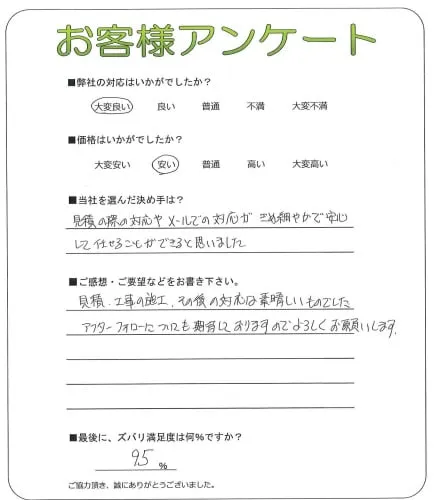 お客様アンケート
■弊社の対応はいかがでしたか？
大変良い 良い 普通 不満 大変不満
■価格はいかがでしたか？
大変安い 安い 普通 高い 大変高い
■当社を選んだ決め手は？
見積の際の対応やメールでの対応がきめ細やかで安心
して任せることができると思いました
■ご感想・ご要望などをお書き下さい。
見積、工事の施工、その後の対応は素晴しいものでした
アフターフォローについても期待しておりますのでよろしくお願いします。
■最後に、ズバリ満足度は何%ですか？
95 %
ご協力頂き、誠にありがとうございました。